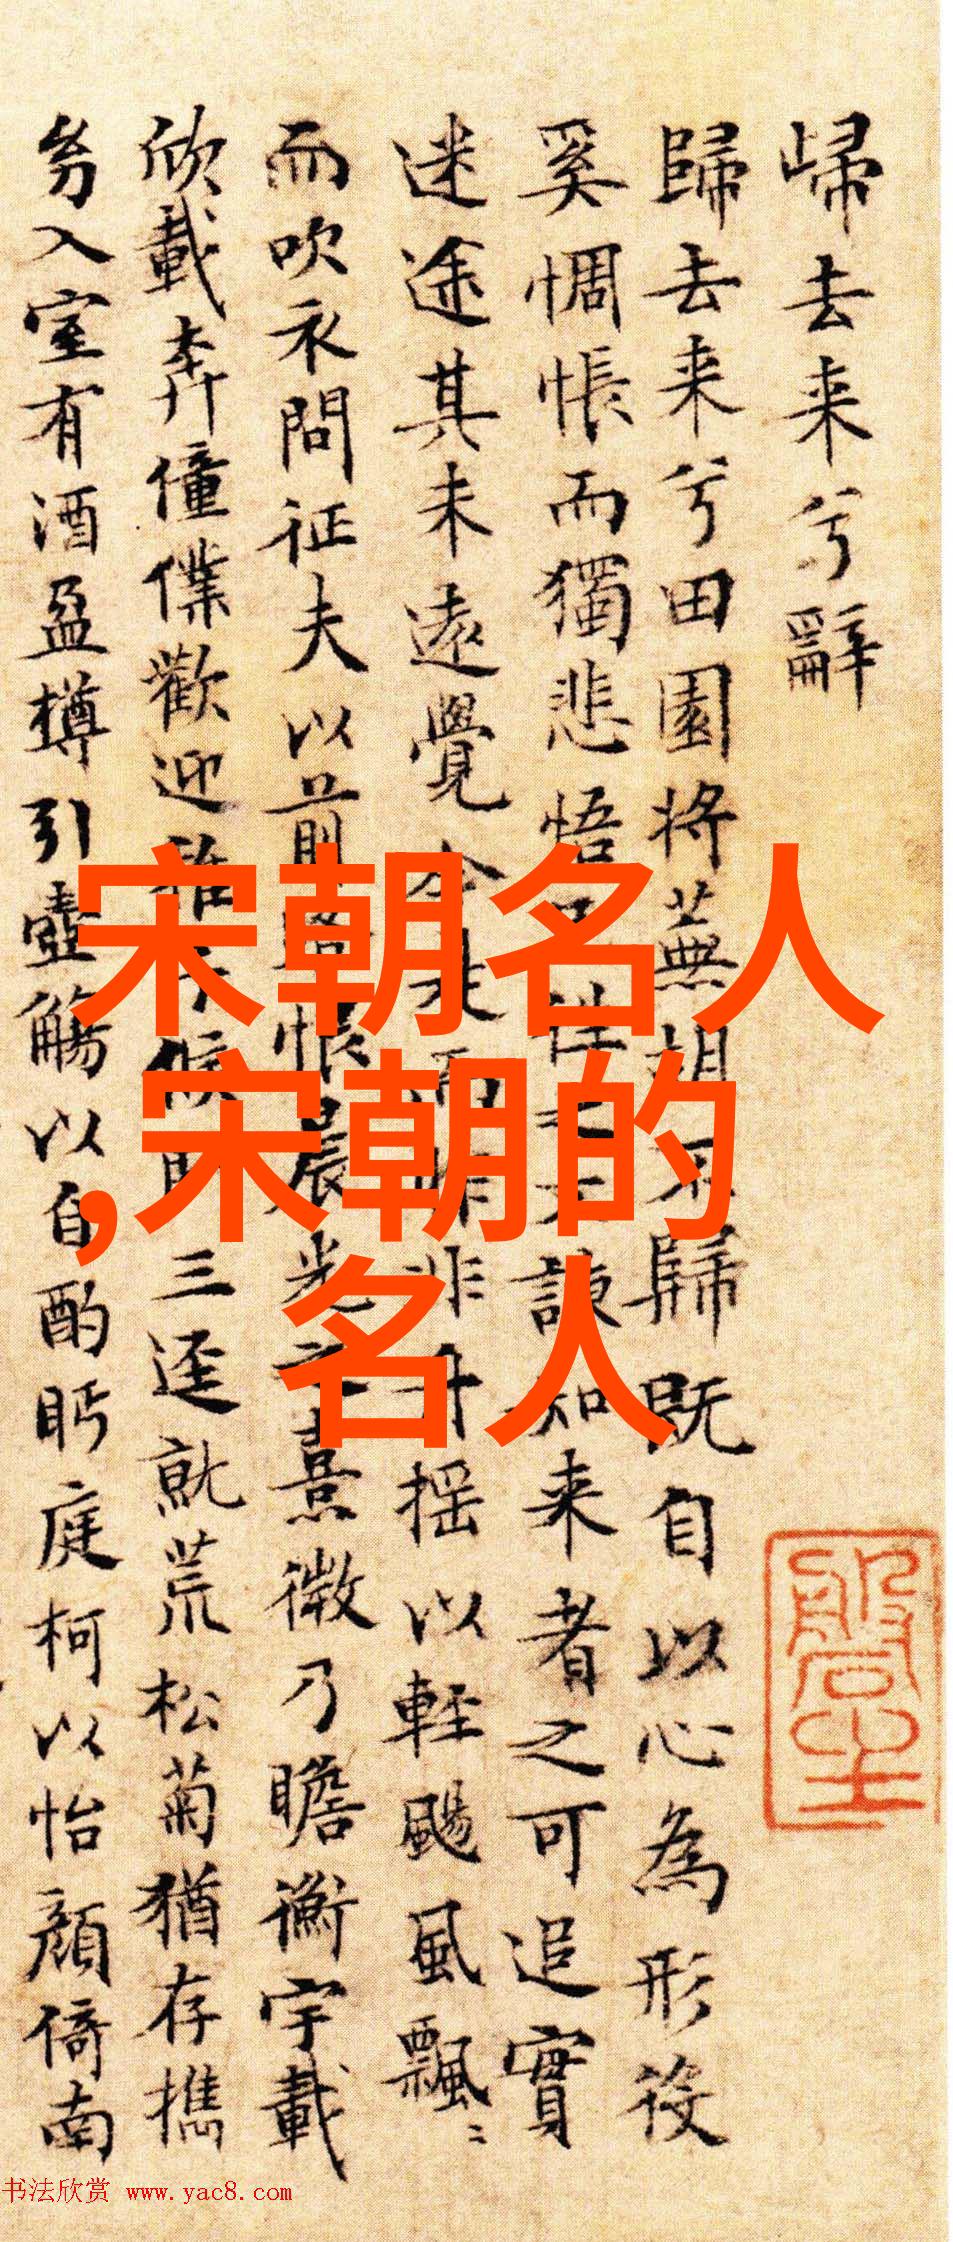 歸去来兮辭
歸去来兮田園将蕪胡不歸既自以心為形役
奚惆悵而獨悲悟已往之不諫知来者之可追實
迷途其未遠覺今是而昨非舟揺以軽颺風飄〻
而吹衣問征夫以前路恨晨光之熹微乃瞻衡宇載
欣載奔僮僕歡迎稚子候門三逕就荒松菊猶存攜
幼入室有酒盈樽引壺觴以自酌眄庭柯以怡顔倚南
宋朝名人
,宋朝的
名人
书法欣赏 www.yac8.com